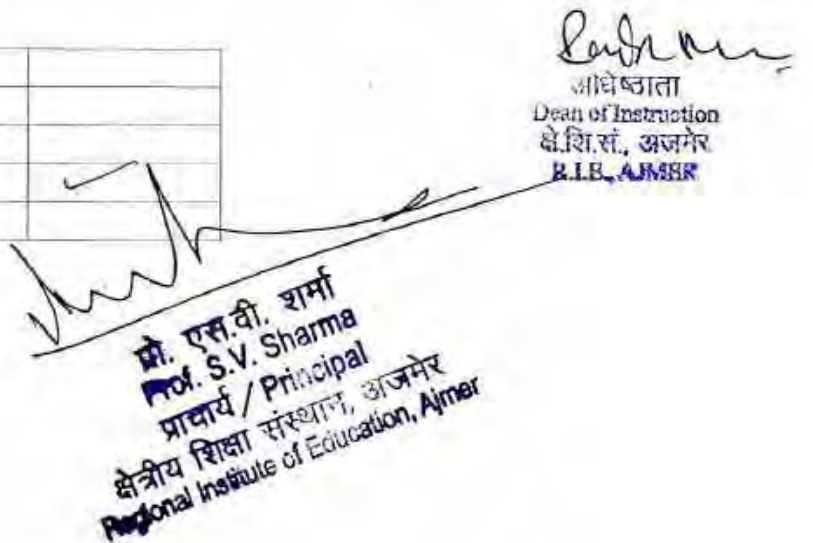 अधिष्ठाता
Dean of Instruction
क्षे.शि.सं., अजमेर
R.I.E., AJMER
प्रो. एस.वी. शर्मा
Prof. S.V. Sharma
प्राचार्य / Principal
क्षेत्रीय शिक्षा संस्थान, अजमेर
Regional Institute of Education, Ajmer